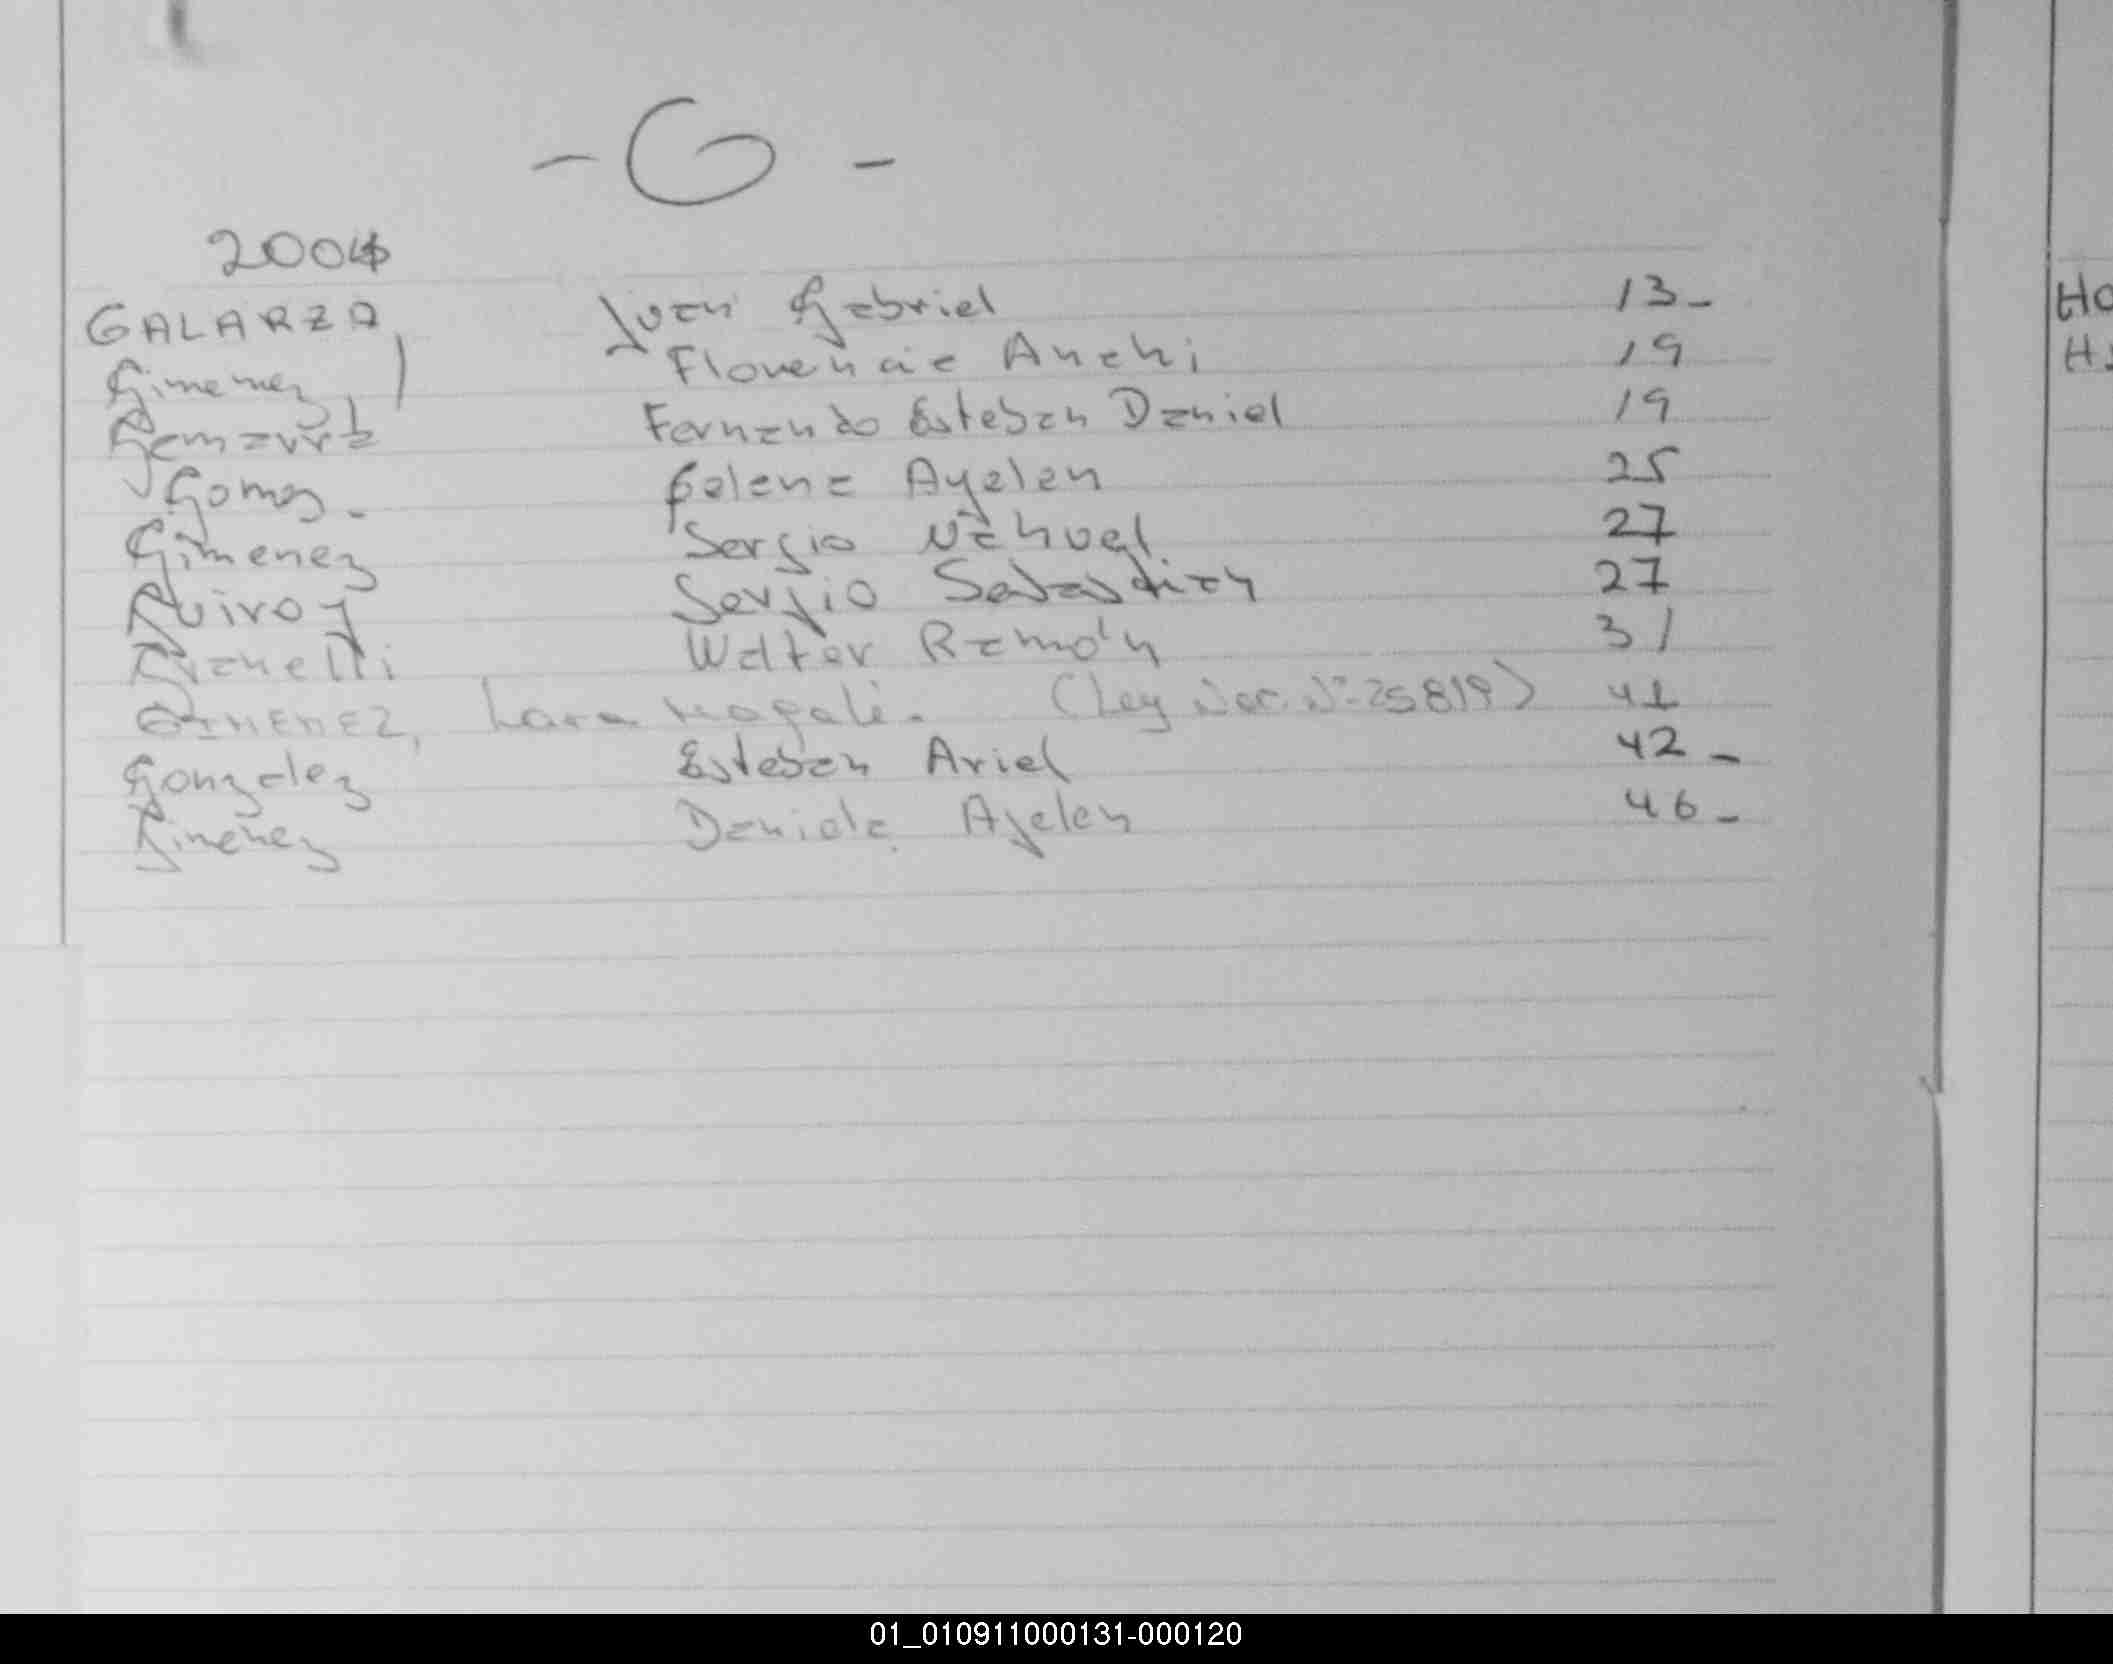 - G -
2004
GALARZA Juan Gabriel 13-
Gimenez Florencia Anahi 19
Gamarra Fernando Esteban Daniel 19
Gomez - Belene Ayelen 25
Gimenez Sergio Nahuel 27
Quiroz Sergio Sebastian 27
Walter Ramón 31
GIMENEZ, Lara Magali. (Ley Nac. Nº 25819) 41
Gonzalez Esteban Ariel 42-
Gimenez Daniela Ayelen 46-
01_010911000131-000120